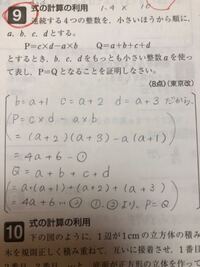 9 式の計算の利用
連続する4つの整数を、小さいほうから順に、
a, b, c, dとする。
P=c×d-a×b Q=a+b+c+d
とするとき、b, c, dをもっとも小さい整数aを使っ
て表し、P=Qとなることを証明しなさい。
(8点)(東京改)
b=a+1 c=a+2 d=a+3 だから、
P=c×d-a×b
=(a+2)(a+3)-a(a+1)
=4a+6-①
Q=a+b+c+d
=a+(a+1)+(a+2)+(a+3)
=4a+6…② ①、②より、P=Q
10 式の計算の利用
下の図のように、1辺が1cmの立方体の積
木を規則正しく積み重ねて、互いに接着させ、1番目